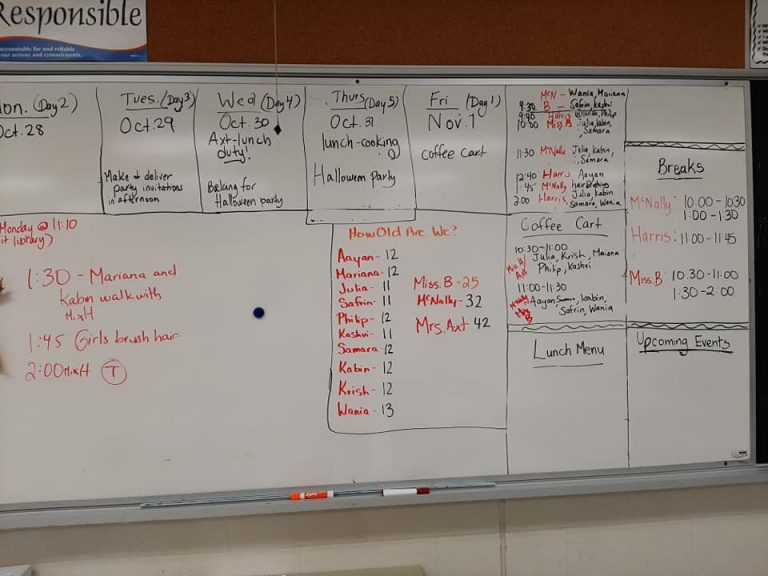 Responsible
Accountable for and reliable
in your actions and commitments.
Mon. (Day 2)
Oct. 28
Tues. (Day 3)
Oct. 29
Make & deliver
party invitations
in afternoon
Wed (Day 4)
Oct. 30
Axt-lunch
duty!
Baking for
Halloween party
Thurs (Day 5)
Oct. 31
lunch-cooking
Halloween Party
Fri (Day 1)
Nov. 1
coffee cart
McN - Wania, Mariana
9:30 B - Safrin, Kashvi
9:40 Harris Philip
10:00 Miss.B Julia, Kabin,
Samara
11:30 McNally Julia, Kabin,
Samara
12:40 Harris Aayan
1:45 McNally hair brushing
2:00 Harris, Julia, Kabin
Samara, Wania
Breaks
McNally: 10:00-10:30
1:00-1:30
Harris: 11:00-11:45
Miss.B: 10:30-11:00
1:30-2:00
Monday @ 11:10
library)
1:30 - Mariana and
Kabin walk with
M.xH
1:45 Girls brush hair
2:00 M.xH T
How Old Are We?
Aayan - 12
Mariana - 12
Julia - 11
Safrin - 11
Philip - 12
Kashvi - 11
Samara - 12
Kabin - 12
Krish - 12
Wania - 13
Miss.B - 25
McNally - 32
Mrs. Axt 42
Coffee Cart
10:30-11:00
Julia, Krish, Maiana
Philip, Kashvi
11:00-11:30
Aayan, Samara, Kabin,
Safrin, Wania
Lunch Menu
Upcoming Events